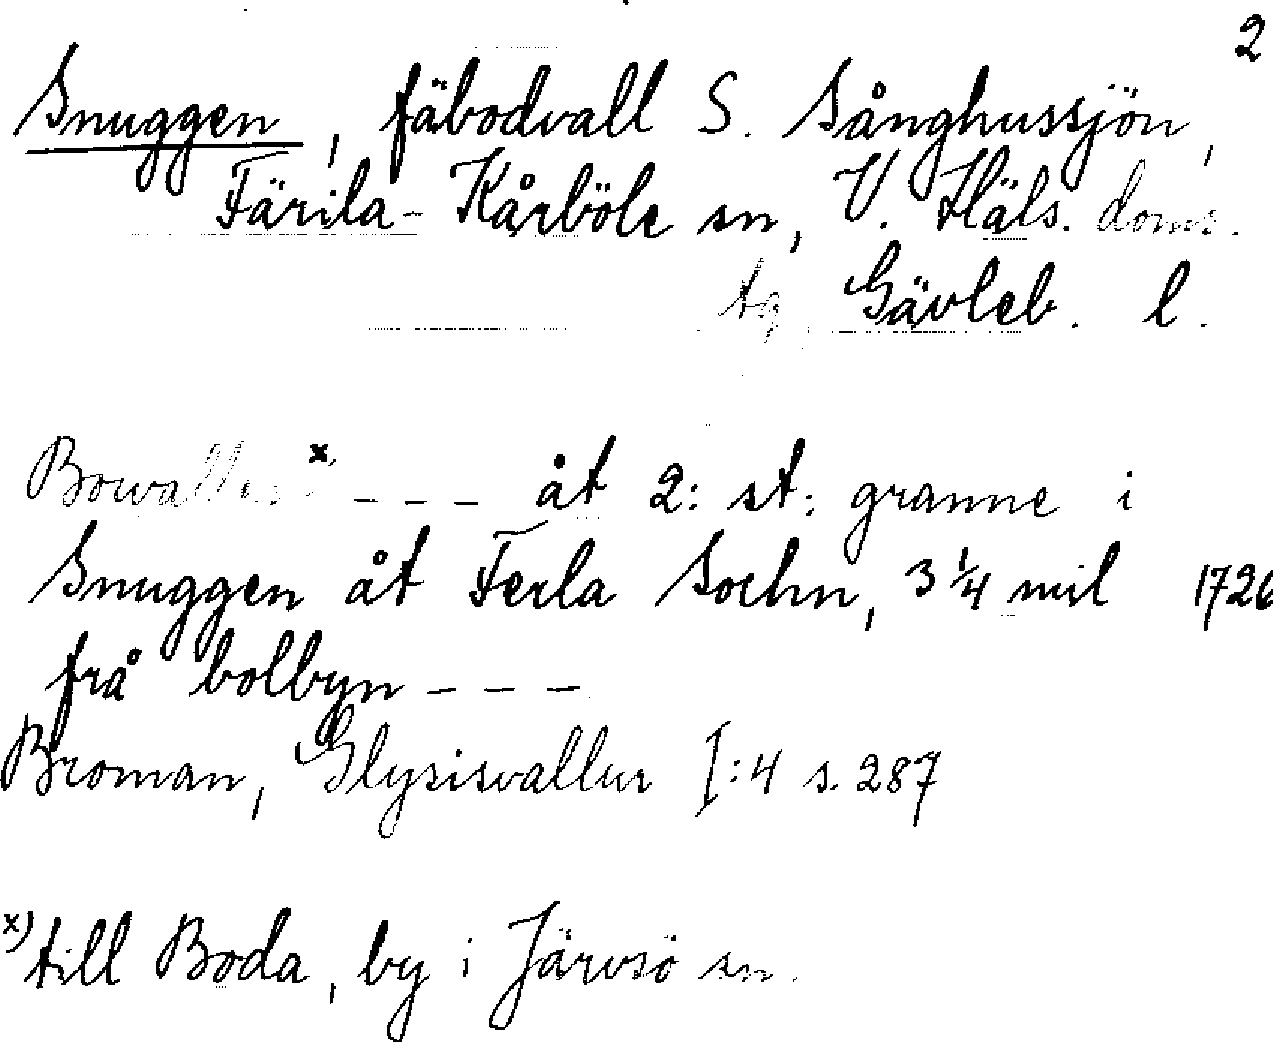 2
Snuggen, fäbodvall S. Sånghussjön,
Färila-Kårböle sn, V. Häls. doms.
tg Gävleb. l.
x) --- åt 2: st: granne i
Snuggen åt Ferla Sochn, 3 1/4 mil 1726
frå bolbyn ---
Broman, Glysisvallur I:4 s. 287
x) till Boda, by i Järvsö sn.